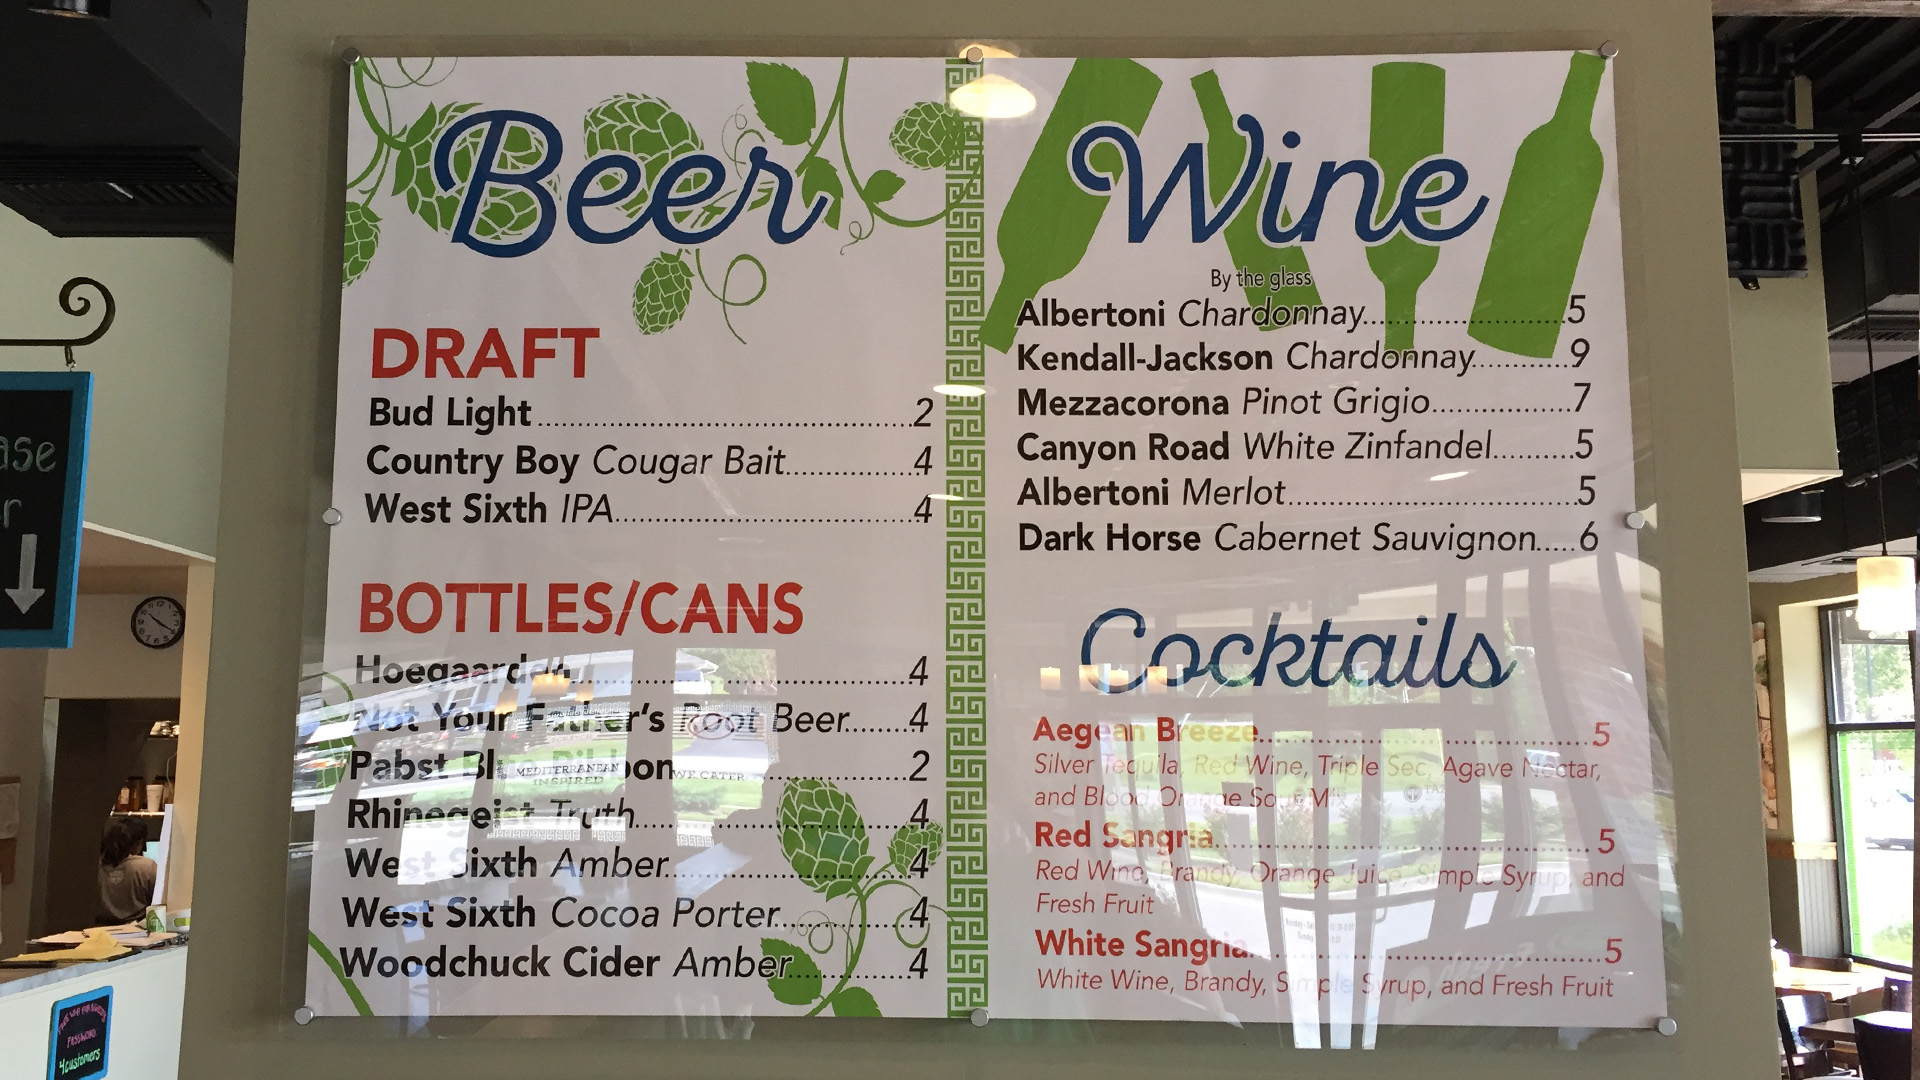 Beer
DRAFT
Bud Light 2
Country Boy Cougar Bait 4
West Sixth IPA 4
BOTTLES/CANS
Hoegaarden 4
Not Your Father's Root Beer 4
Pabst Blue Ribbon 2
Rhinegeist Truth 4
West Sixth Amber 4
West Sixth Cocoa Porter 4
Woodchuck Cider Amber 4
Wine
By the glass
Albertoni Chardonnay 5
Kendall-Jackson Chardonnay 9
Mezzacorona Pinot Grigio 7
Canyon Road White Zinfandel 5
Albertoni Merlot 5
Dark Horse Cabernet Sauvignon 6
Cocktails
Aegean Breeze 5
Silver Tequila, Red Wine, Triple Sec, Agave Nectar,
and Blood Orange Sour Mix
Red Sangria 5
Red Wine, Brandy, Orange Juice, Simple Syrup, and
Fresh Fruit
White Sangria 5
White Wine, Brandy, Simple Syrup, and Fresh Fruit
MEDITERRANEAN
INSPIRED
WE CATER
PASSWORD
4customers